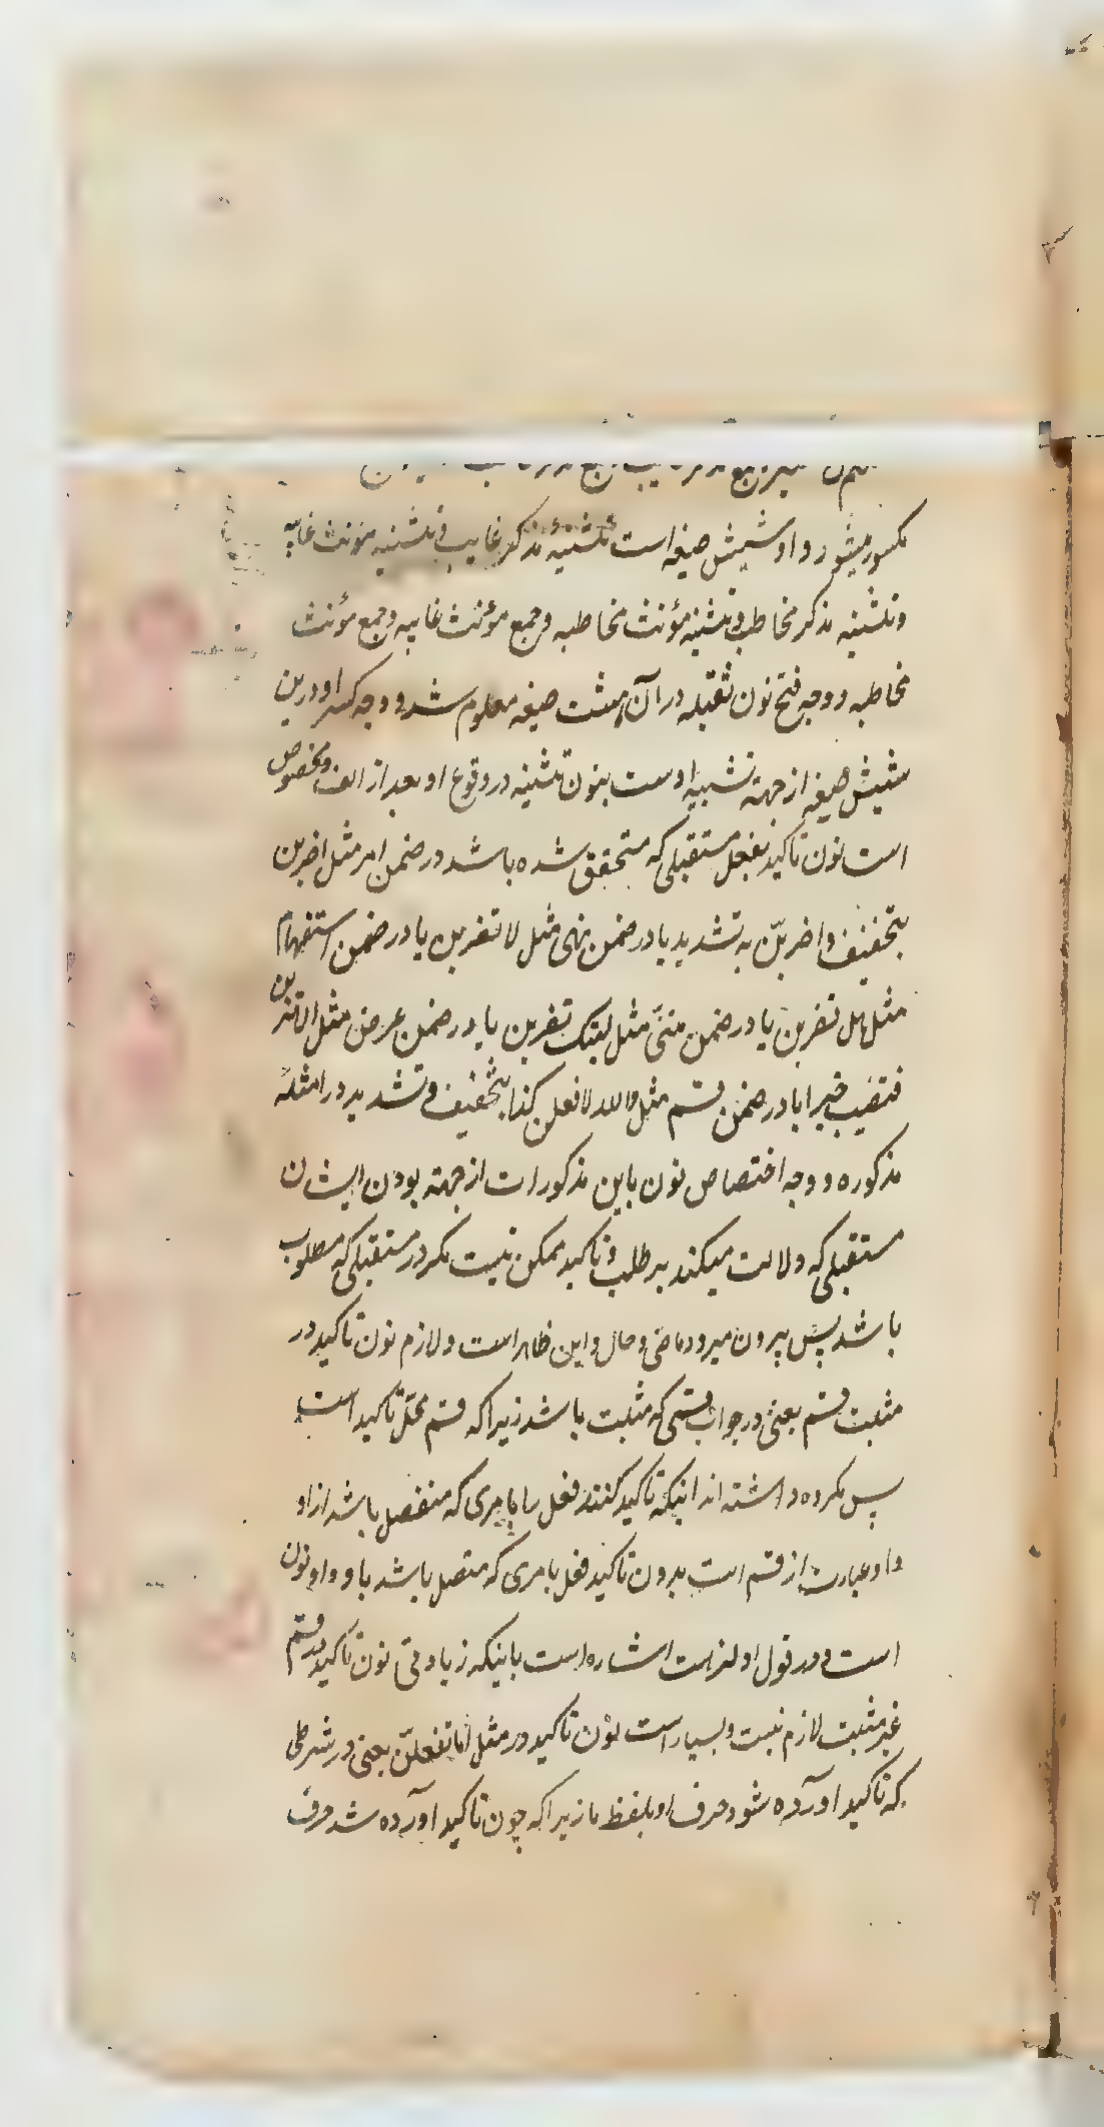 مکسور میشود و او در شیش صیغه است تثنیهٔ مذکر غایب و تثنیه مؤنث غایبه
و تثنیه مذکر مخاطب و تثنیه مؤنث مخاطبه و جمع مؤنث غایبه و جمع مؤنث
مخاطبه و وجه فتح نون ثقیله در آن هشت صیغه معلوم شد و وجه کسر او درین
شیش صیغه از جهته تشبیه اوست بنون تثنیه در وقوع او بعد از الف و مخصوص
است نون تاکید بفعل مستقبلی که متحقق شده باشد در ضمن امر مثل اضربن
بتخفیف و اضربنّ به تشدید یا در ضمن نهی مثل لا تضربن یا در ضمن استفهام
مثل هل تضربن یا در ضمن متمنّی مثل لیتک تضربن یا در ضمن عرض مثل الا تنزلن
فتصیب خیرا یا در ضمن قسم مثل والله لافعلن کذا بتخفیف و تشدید در امثلهٔ
مذکوره و وجه اختصاص نون باین مذکورات از جهته بودن ایشان
مستقبلی که دلالت میکند بر طلب و تاکید ممکن نیست مکر در مستقبلی که مطلوب
باشد پس بیرون میرود ماضی و حال و این ظاهر است و لازم نون تاکید در
مثبت قسم یعنی در جواب قسمی که مثبت باشد زیرا که قسم محل تاکید است
پس مکروه داشته اند اینکه تاکید کنند فعل را بامری که منفصل باشد از او
و او عبارت از قسم است بدون تاکید فعل بامری که متصل باشد باو و او نون
است و در قول او لزمت اشاره است باینکه زیادتی نون تاکید در قسم
غیر مثبت لازم نیست و بسیار است نون تاکید در مثل اما تفعلنّ یعنی در شرطی
که تاکید آورده شود حرف او بلفظ ما زیرا که چون تاکید آورده شد حرف